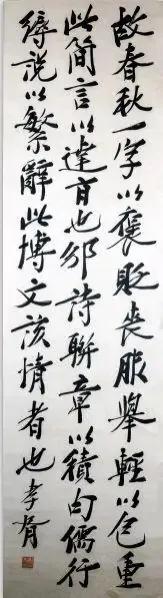 故春秋一字以褒贬喪服舉輕以包重
此簡言以達旨也邠詩聯章以積句儒行
縟說以繁辭此博文該情者也孝胥